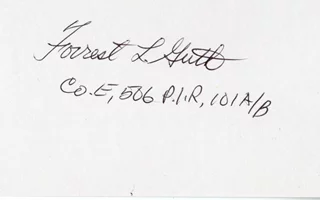 Forrest L Guth
Co. E, 506 P.I.R, 101 A/B